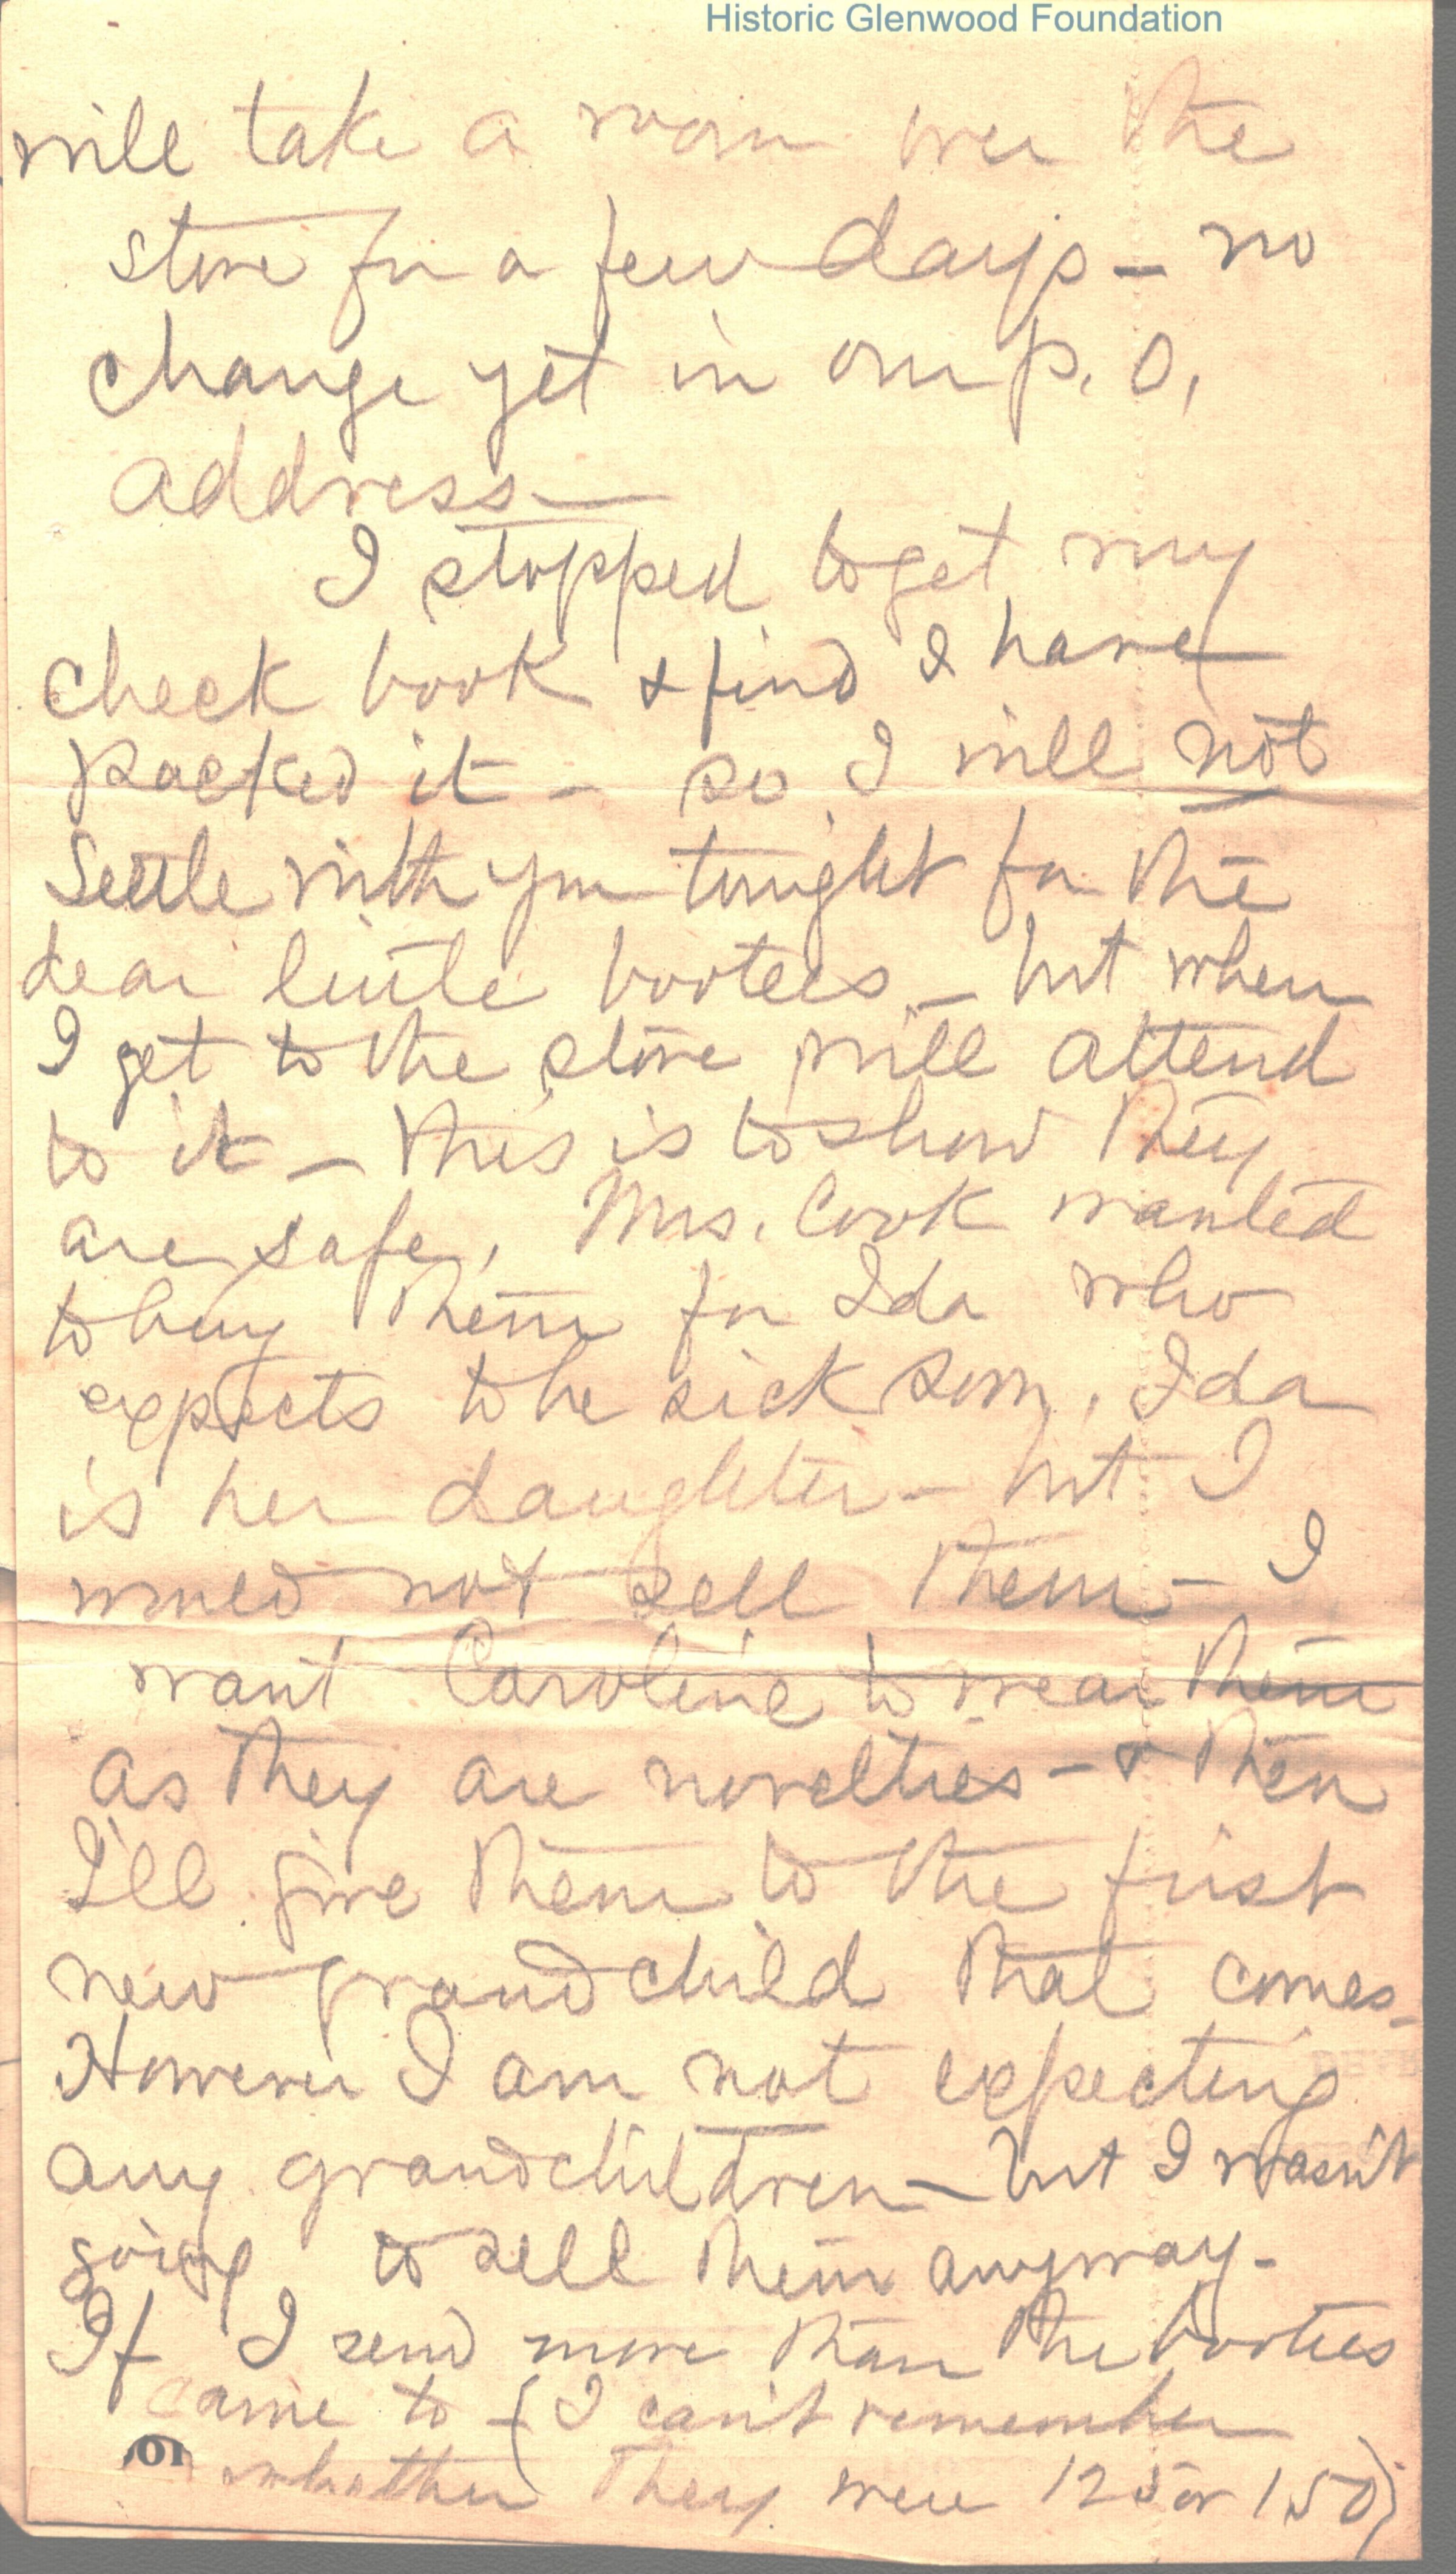 Historic Glenwood Foundation
will take a room over the
store for a few days – no
change yet in our p. o,
address —
I stopped to get my
check book & find I have
packed it – so I will not
settle with you tonight for the
dear little bootees – but when
I get to the store will attend
to it – this is to show they
are safe, Mrs. Cook wanted
to buy them for Ida who
expects to be sick soon, Ida
is her daughter – but I
would not sell them – I
want Caroline to wear them
as they are novelties – & then
I'll give them to the first
new grandchild that comes –
However I am not expecting
any grandchildren – but I wasn't
going to sell them anyway –
If I send more than the bootees
came to – (I can't remember
whether they were 125 or 150)
10